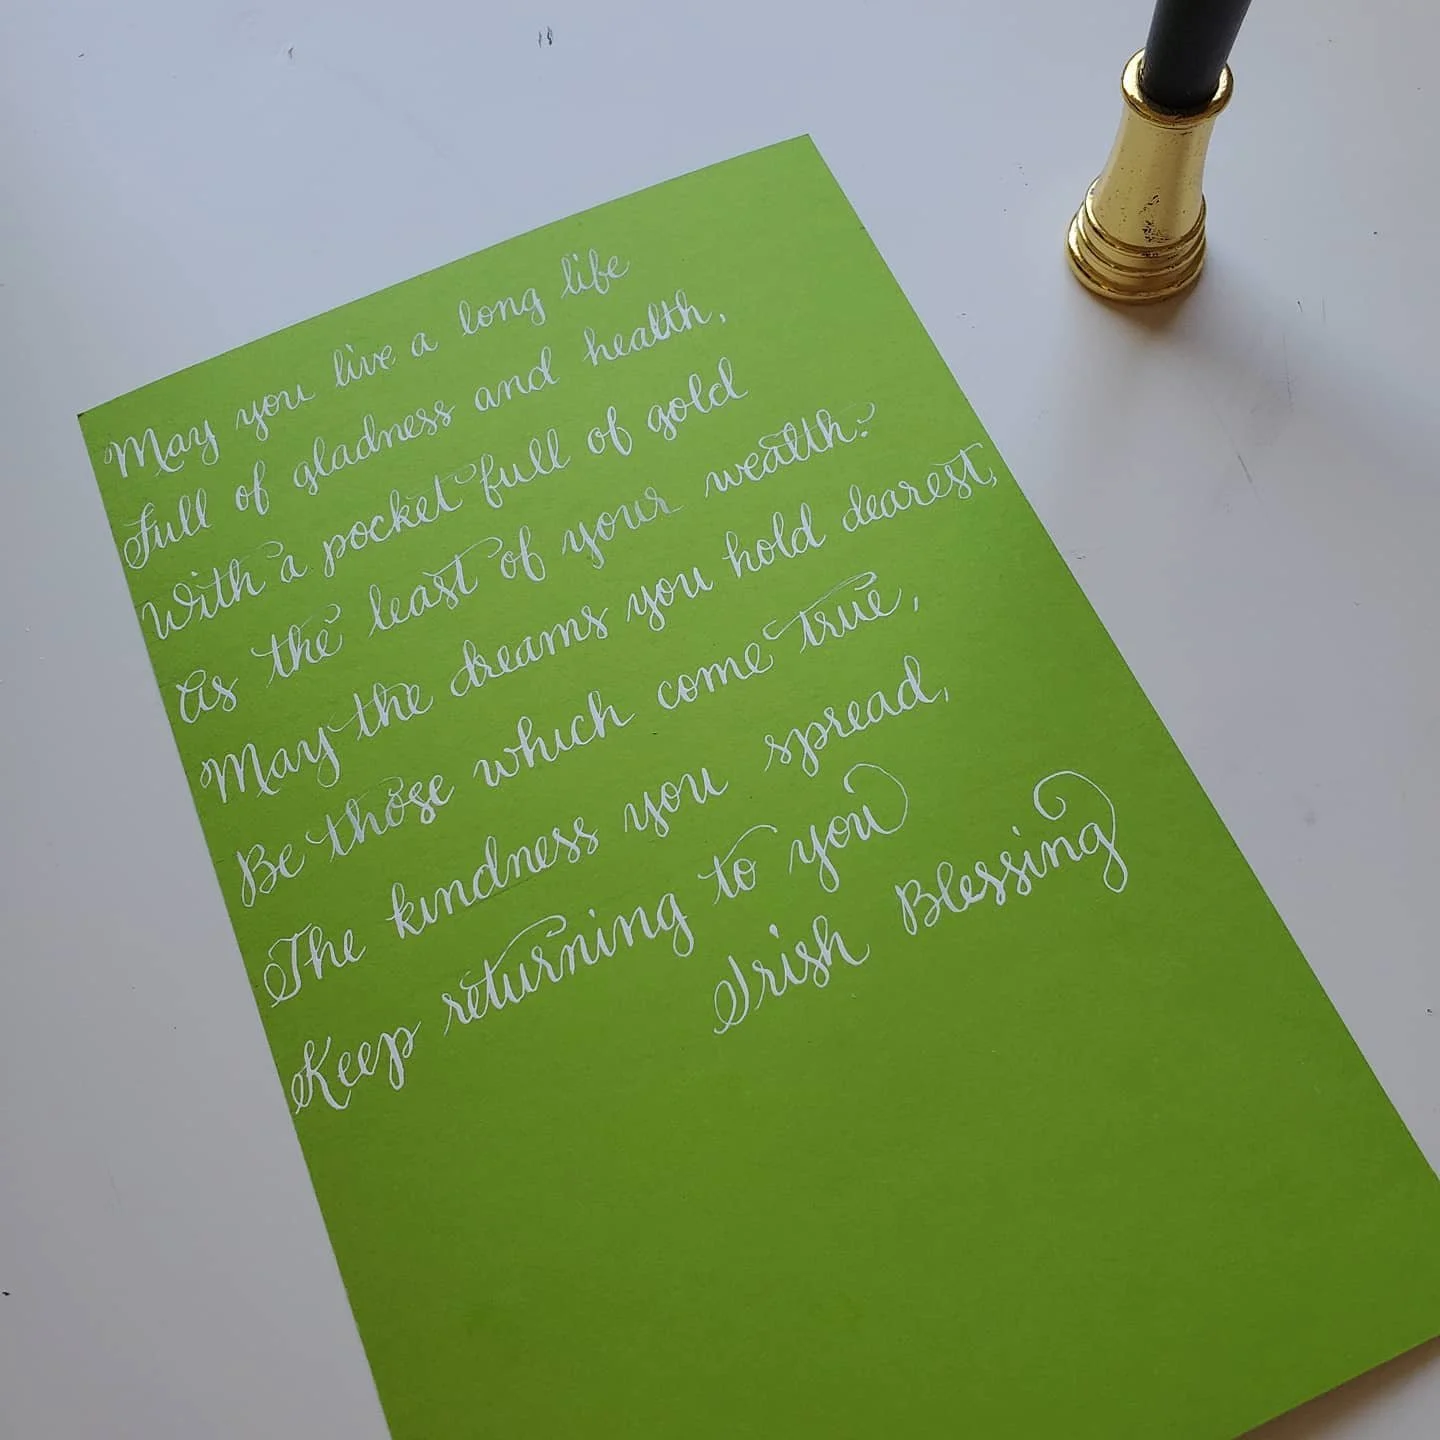 May you live a long life
Full of gladness and health,
With a pocket full of gold
As the least of your wealth.
May the dreams you hold dearest,
Be those which come true,
The kindness you spread,
Keep returning to you
Irish Blessing